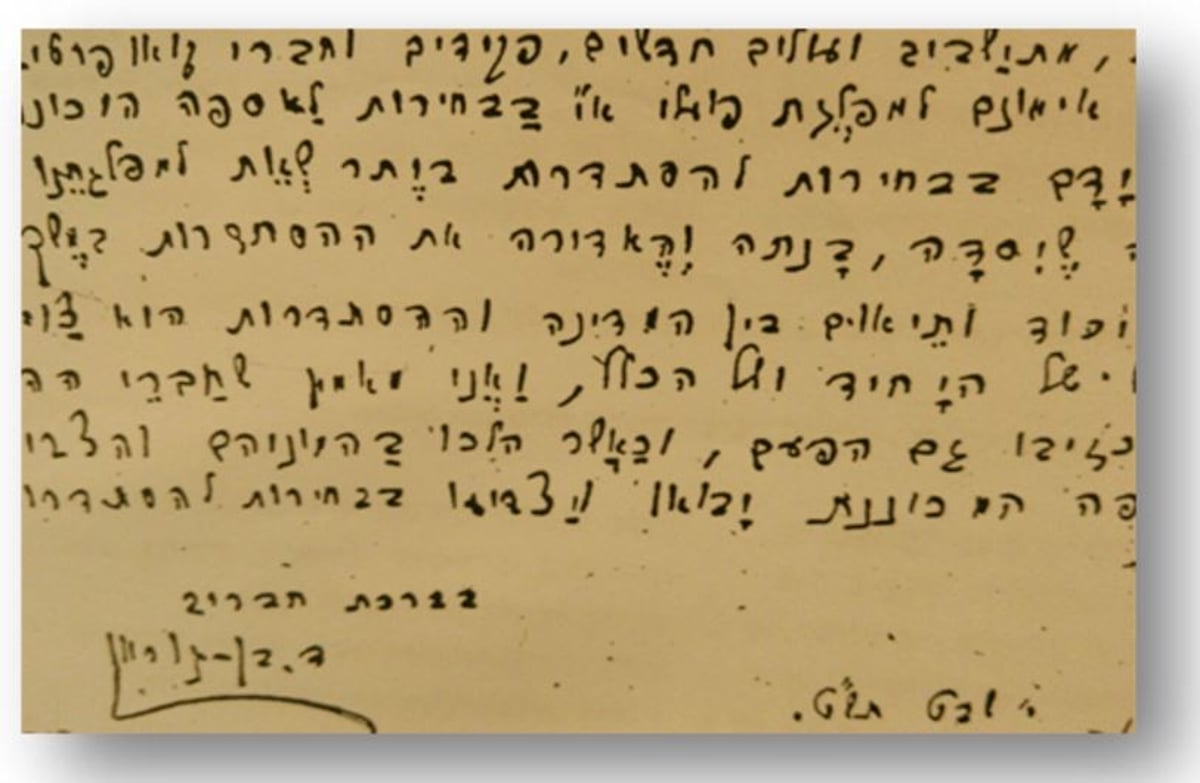 , מתישבים ועולים חדשים, פקידים וחברי
אימונם למפלגת פועלי א"י בַּבחירות לַאספה
בבחירות להסתדרות ביֶתר שְׂאֵת למפלגתֵנו
שֶׁיִסדָה, בָּנתה וְהֶאדירה את ההסתדרות
ותֵיאום בין המדינה וההסתדרות הוא
של היָחיד ושל הכלל, וַאֲני מאמין שחַברֵי
גם הפעם, וכַאֲשר הלכו בַּהמוניהם
המכוננת יָבואו וְיַצביעו בבחירות
בברכת חברים
ד. בן-גוריון
י' שבט תש"ט.